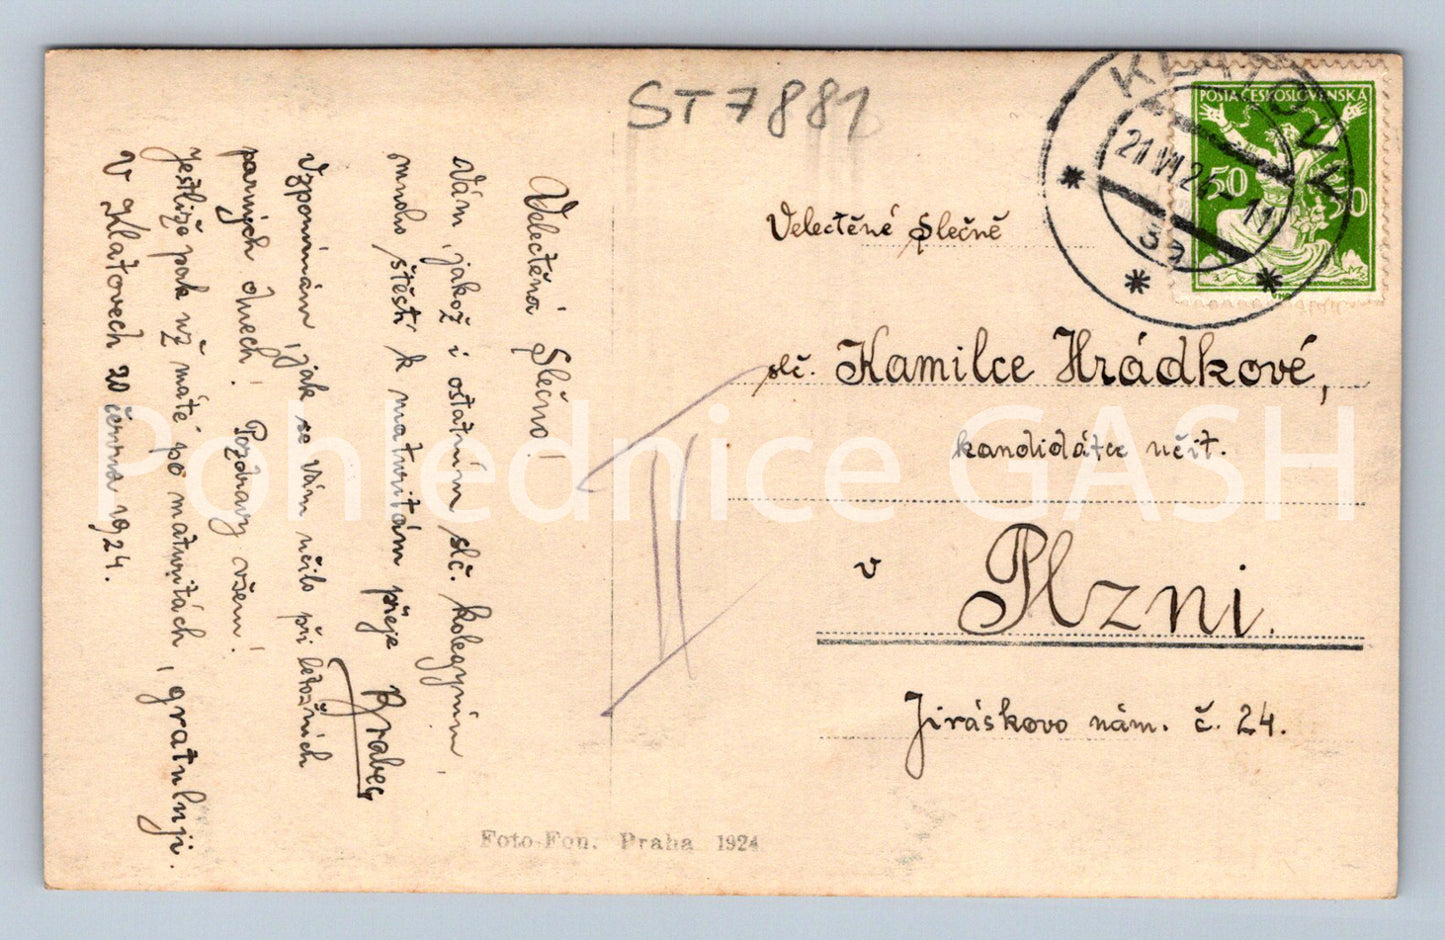 ST 7881
KLATOVY
21.VI.24-11
3a
POŠTA ČESKOSLOVENSKÁ
50 50
Velectěné slečně
slč. Kamilce Hrádkové,
kandidátce učit.
v Plzni.
Jiráskovo nám. č. 24.
Velectěná Slečno!
Vám, jakož i ostatním slč. kolegyním,
mnoho štěstí k maturitám přeje Brabec,
Vzpomínám, jak se Vám učilo při letošních
parných dnech! Pozdravy všem!
Jestliže pak už máte po maturitách, gratuluji.
V Klatovech 20 června 1924.
II
Foto-Fon. Praha 1924
Pohlednice GASH